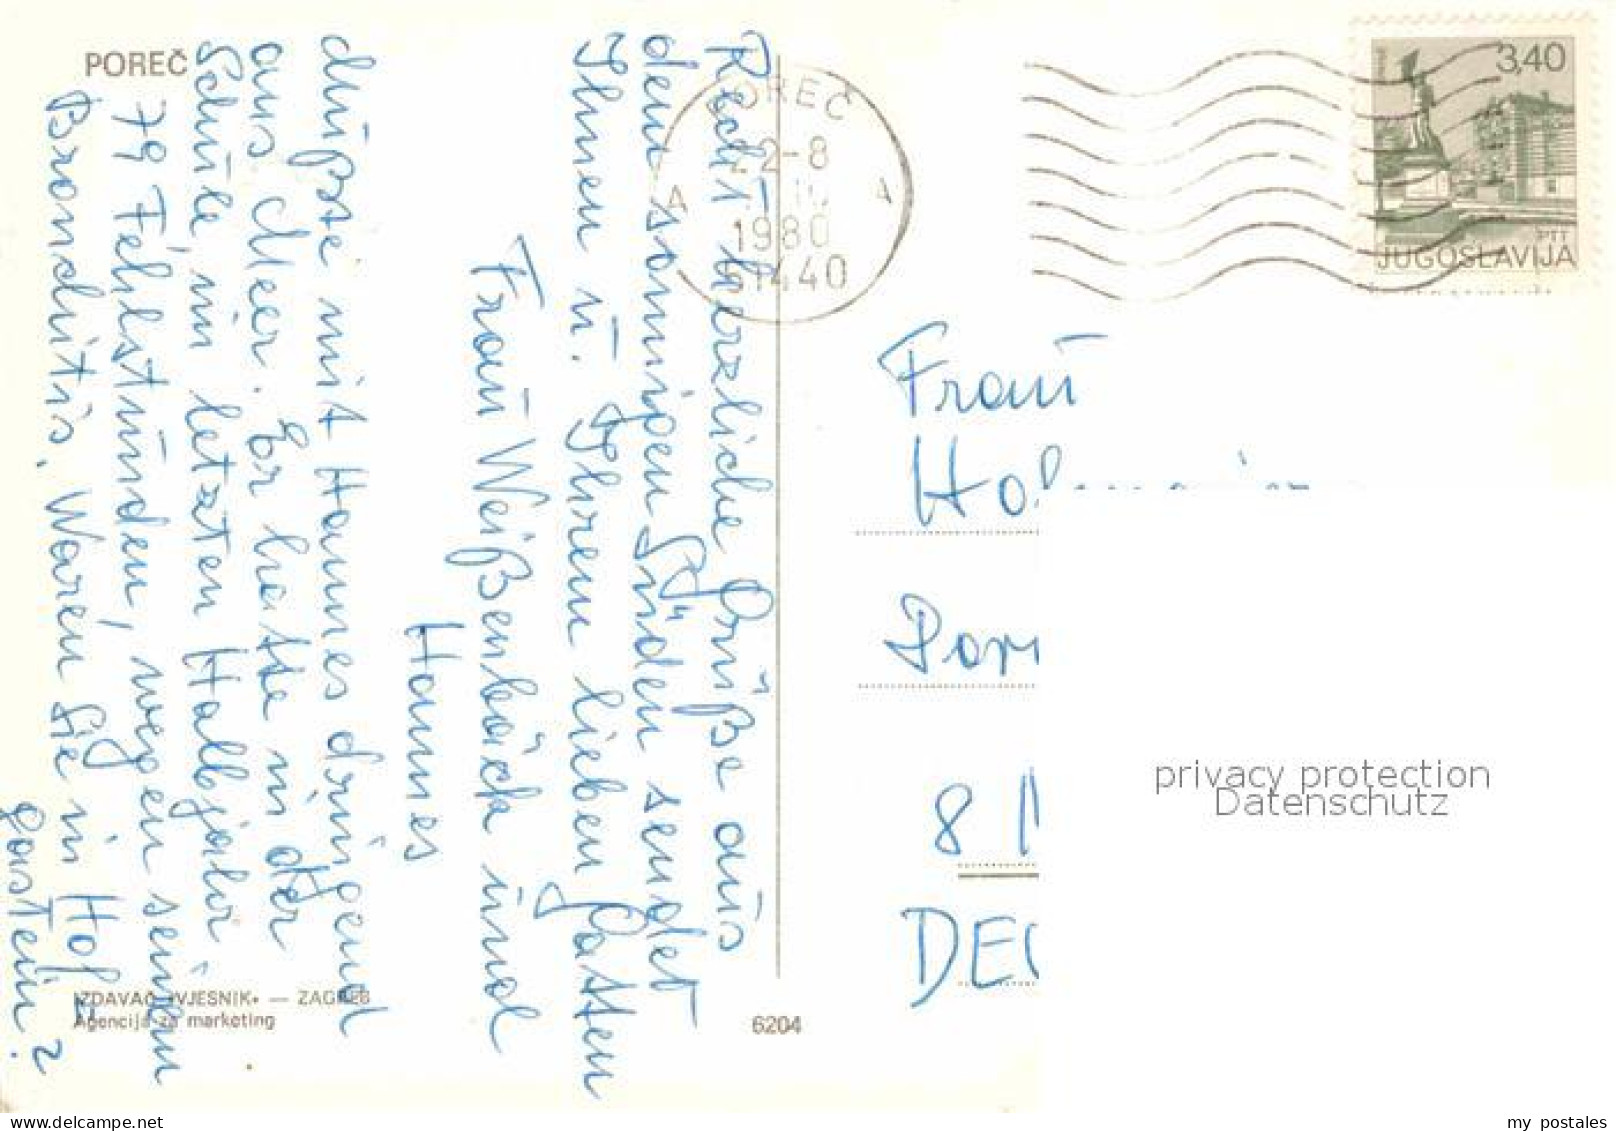 POREČ
Recht herzliche Grüße aus
dem sonnigen Süden sendet
Ihnen u. Ihrem lieben Gatten
Frau Weißenbäck und
Hannes
dürfte mit Hannes dringend
ans Meer. Er hatte in der
Schule im letzten Halbjahr
79 Fehlstunden, wegen seinen
Bronchitis. Waren Sie in Hof
gastein?
IZDAVAČ »VJESNIK« — ZAGREB
Agencija za marketing
6204
POREČ
A A
1980
51440
3,40
PTT
JUGOSLAVIJA
Frau
8
privacy protection
Datenschutz
my postales